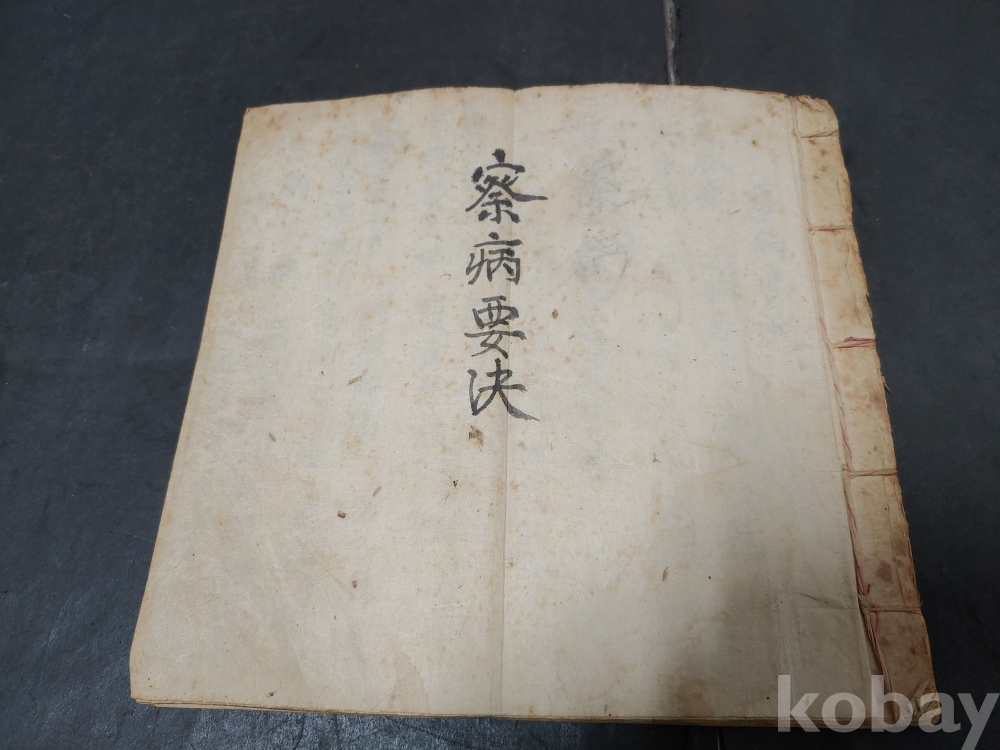 察病要決
kobay